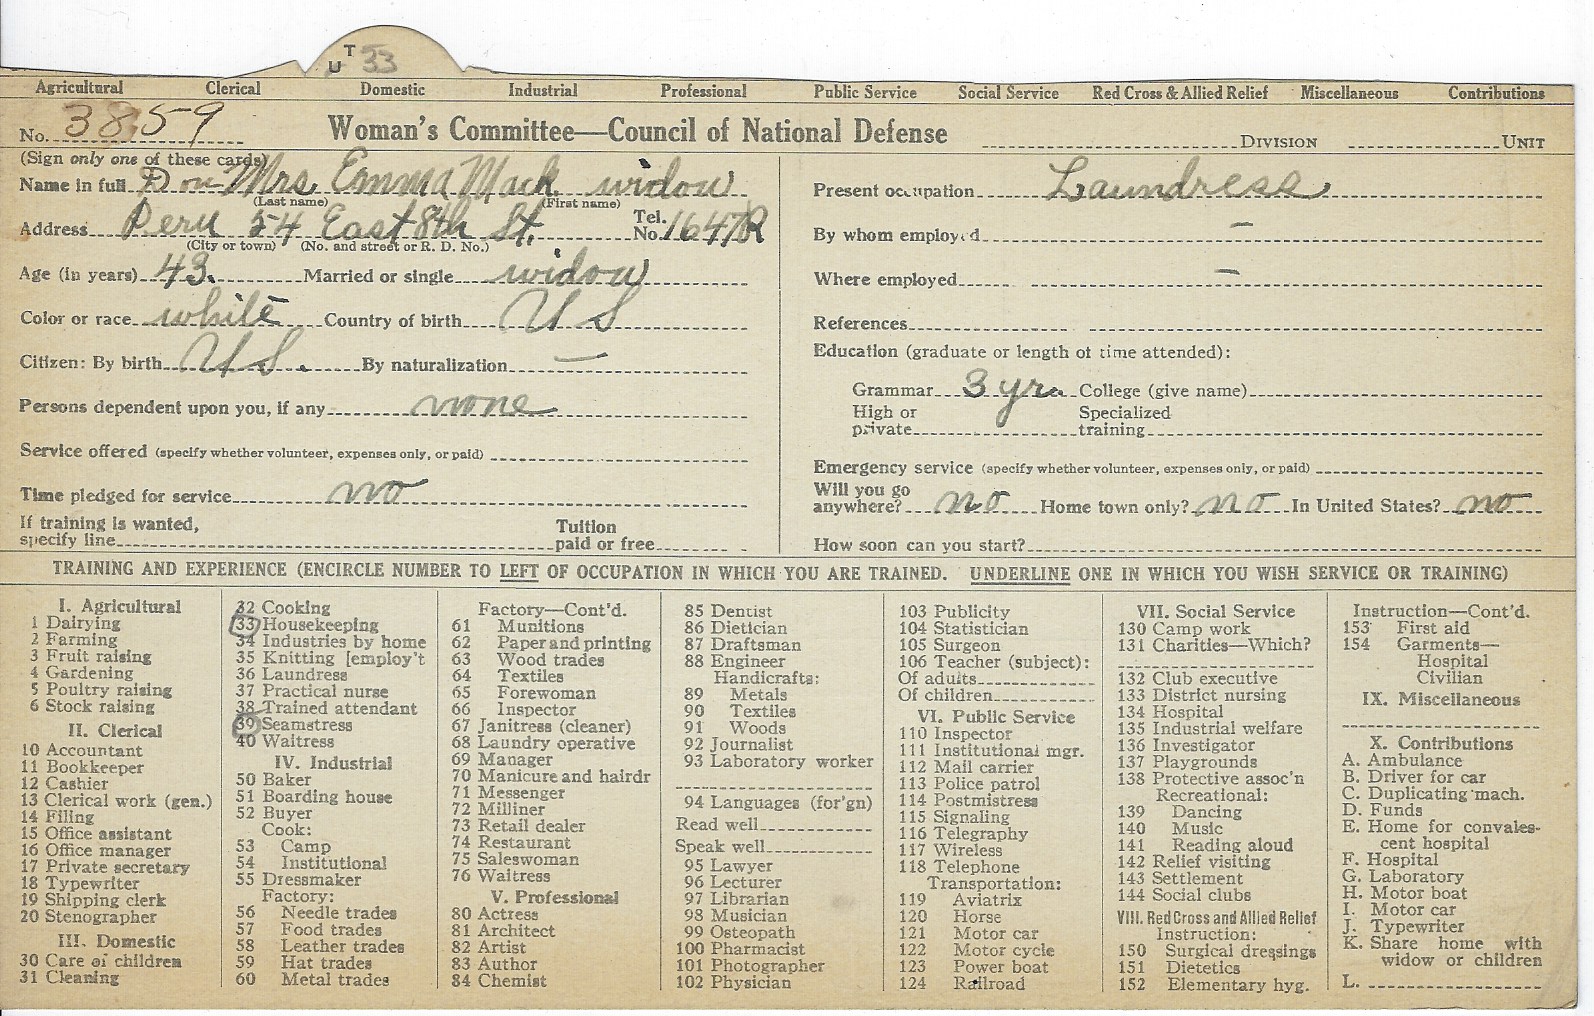 T
U 33
Agricultural Clerical Domestic Industrial Professional Public Service Social Service Red Cross & Allied Relief Miscellaneous Contributions
No. 3859 Woman's Committee—Council of National Defense DIVISION UNIT
(Sign only one of these cards)
Name in full Mrs Emma Mack widow
(Last name) (First name)
Address Peru 54 East 8th St. Tel. No. 1647R
(City or town) (No. and street or R. D. No.)
Age (in years) 43. Married or single widow
Color or race white Country of birth U S
Citizen: By birth U S. By naturalization —
Persons dependent upon you, if any none
Service offered (specify whether volunteer, expenses only, or paid)
Time pledged for service no
If training is wanted,
specify line Tuition paid or free
Present occupation Laundress
By whom employed —
Where employed —
References
Education (graduate or length of time attended):
Grammar 3 yr. College (give name)
High or private Specialized training
Emergency service (specify whether volunteer, expenses only, or paid)
Will you go anywhere? no Home town only? no In United States? no
How soon can you start?
TRAINING AND EXPERIENCE (ENCIRCLE NUMBER TO LEFT OF OCCUPATION IN WHICH YOU ARE TRAINED. UNDERLINE ONE IN WHICH YOU WISH SERVICE OR TRAINING)
I. Agricultural
1 Dairying
2 Farming
3 Fruit raising
4 Gardening
5 Poultry raising
6 Stock raising
II. Clerical
10 Accountant
11 Bookkeeper
12 Cashier
13 Clerical work (gen.)
14 Filing
15 Office assistant
16 Office manager
17 Private secretary
18 Typewriter
19 Shipping clerk
20 Stenographer
III. Domestic
30 Care of children
31 Cleaning
32 Cooking
33 Housekeeping
34 Industries by home
35 Knitting [employ't
36 Laundress
37 Practical nurse
38 Trained attendant
39 Seamstress
40 Waitress
IV. Industrial
50 Baker
51 Boarding house
52 Buyer
Cook:
53 Camp
54 Institutional
55 Dressmaker
Factory:
56 Needle trades
57 Food trades
58 Leather trades
59 Hat trades
60 Metal trades
Factory—Cont'd.
61 Munitions
62 Paper and printing
63 Wood trades
64 Textiles
65 Forewoman
66 Inspector
67 Janitress (cleaner)
68 Laundry operative
69 Manager
70 Manicure and hairdr
71 Messenger
72 Milliner
73 Retail dealer
74 Restaurant
75 Saleswoman
76 Waitress
V. Professional
80 Actress
81 Architect
82 Artist
83 Author
84 Chemist
85 Dentist
86 Dietician
87 Draftsman
88 Engineer
Handicrafts:
89 Metals
90 Textiles
91 Woods
92 Journalist
93 Laboratory worker
94 Languages (for'gn)
Read well
Speak well
95 Lawyer
96 Lecturer
97 Librarian
98 Musician
99 Osteopath
100 Pharmacist
101 Photographer
102 Physician
103 Publicity
104 Statistician
105 Surgeon
106 Teacher (subject):
Of adults
Of children
VI. Public Service
110 Inspector
111 Institutional mgr.
112 Mail carrier
113 Police patrol
114 Postmistress
115 Signaling
116 Telegraphy
117 Wireless
118 Telephone
Transportation:
119 Aviatrix
120 Horse
121 Motor car
122 Motor cycle
123 Power boat
124 Railroad
VII. Social Service
130 Camp work
131 Charities—Which?
132 Club executive
133 District nursing
134 Hospital
135 Industrial welfare
136 Investigator
137 Playgrounds
138 Protective assoc'n
Recreational:
139 Dancing
140 Music
141 Reading aloud
142 Relief visiting
143 Settlement
144 Social clubs
VIII. Red Cross and Allied Relief
Instruction:
150 Surgical dressings
151 Dietetics
152 Elementary hyg.
Instruction—Cont'd.
153 First aid
154 Garments—
Hospital
Civilian
IX. Miscellaneous
X. Contributions
A. Ambulance
B. Driver for car
C. Duplicating mach.
D. Funds
E. Home for convales-
cent hospital
F. Hospital
G. Laboratory
H. Motor boat
I. Motor car
J. Typewriter
K. Share home with
widow or children
L.